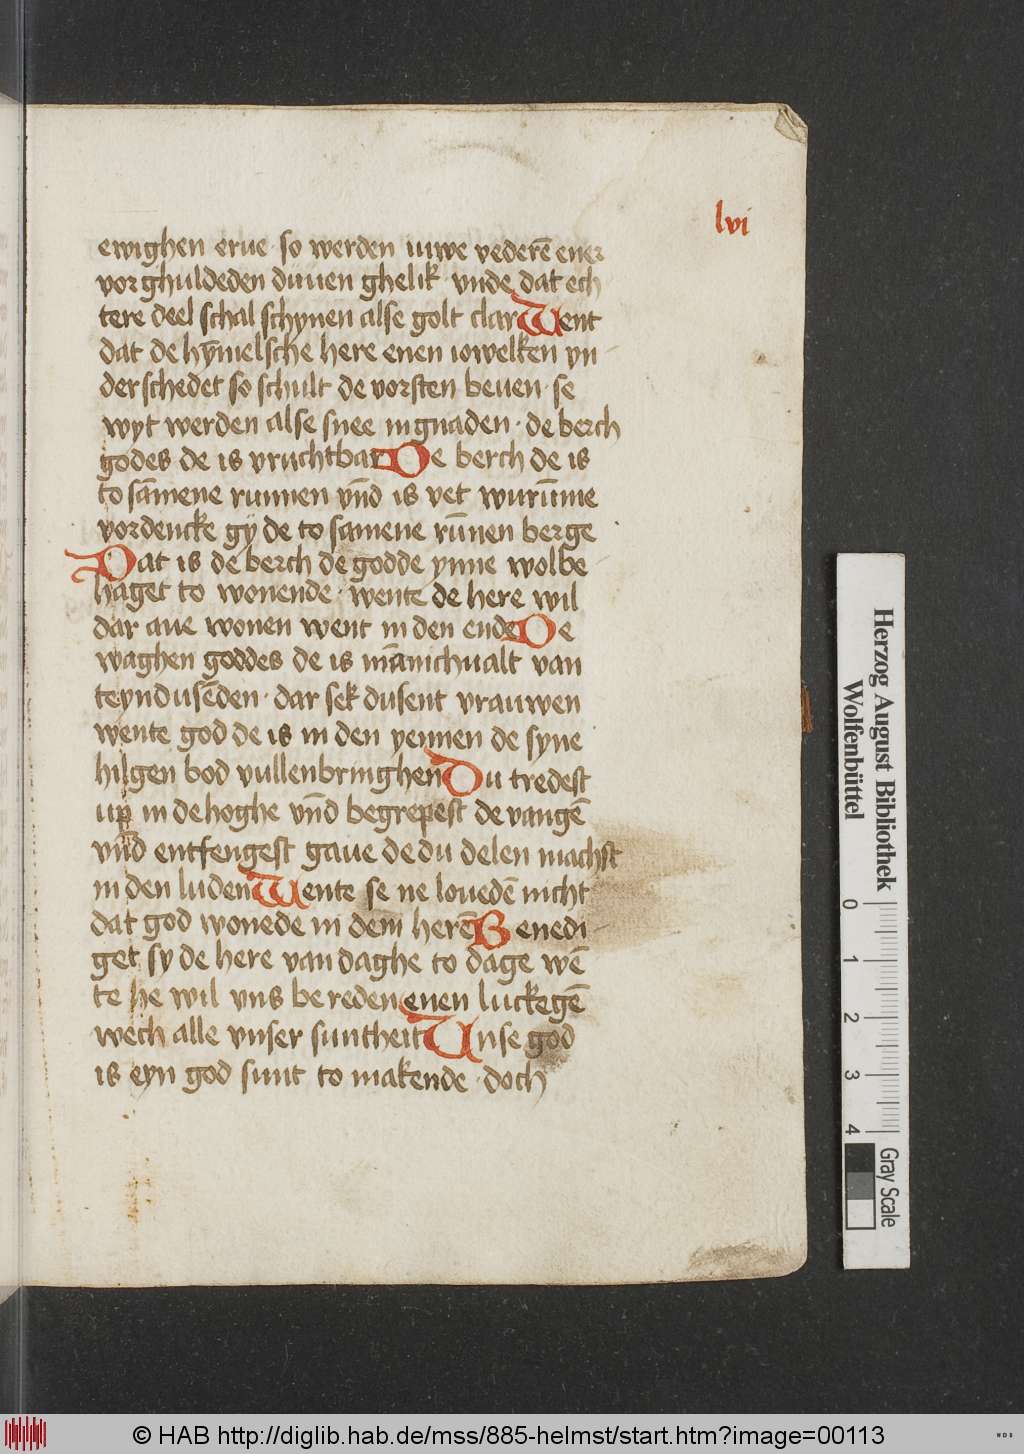 lvi
ewighen erue · so werden iuwe vederē ener
vorghuldeden duuen ghelik · vnde dat ech
tere deel schal schynen alse golt clar Went
dat de hȳmelsche here enen iowelken yn
derschedet so schult de vorsten beuen · se
wyt werden alse snee in gnaden · de berch
godes de is vruchtbar De berch de is
to sāmene runnen vn̄d is vet wurūme
vordencke gy de to samene rūnen berge
Dat is de berch de godde ynne wolbe
haget to wonende · wente de here wil
dar aue wonen went in den ende De
waghen goddes de is mānichualt van
teyndusēden · dar sek dusent vrauwen
wente god de is in den yennen de syne
hilgen bod vullenbringhen Du tredest
up in de hoghe vn̄d begrepest de vangē
vn̄d entfengest gaue de du delen machst
in den luden Wente se ne louedē nicht
dat god wonede in dem herē Benedi
get sy de here van daghe to dage wē
te he wil vns bereden enen luckegē
wech alle vnser suntheit Unse god
is eyn god sunt to makende · doch
Herzog August Bibliothek
Wolfenbüttel
0 1 2 3 4
Gray Scale
© HAB http://diglib.hab.de/mss/885-helmst/start.htm?image=00113